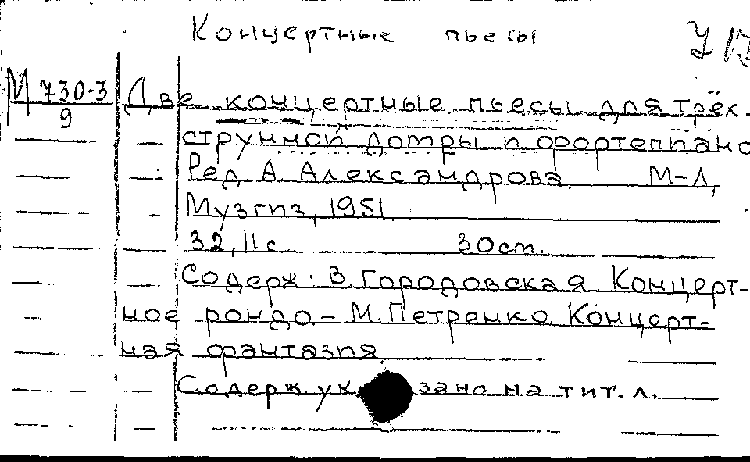 Концертные пьесы
М 730-3
9
Две концертные пьесы для трёх-
струнной домры и фортепиано
Ред А Александрова М-Л,
Музгиз, 1951
32, 11с 30см.
Содерж: З. Городовская Концерт-
ное рондо.- М. Петренко Концерт-
ная фантазия
Содерж указано на тит. л.